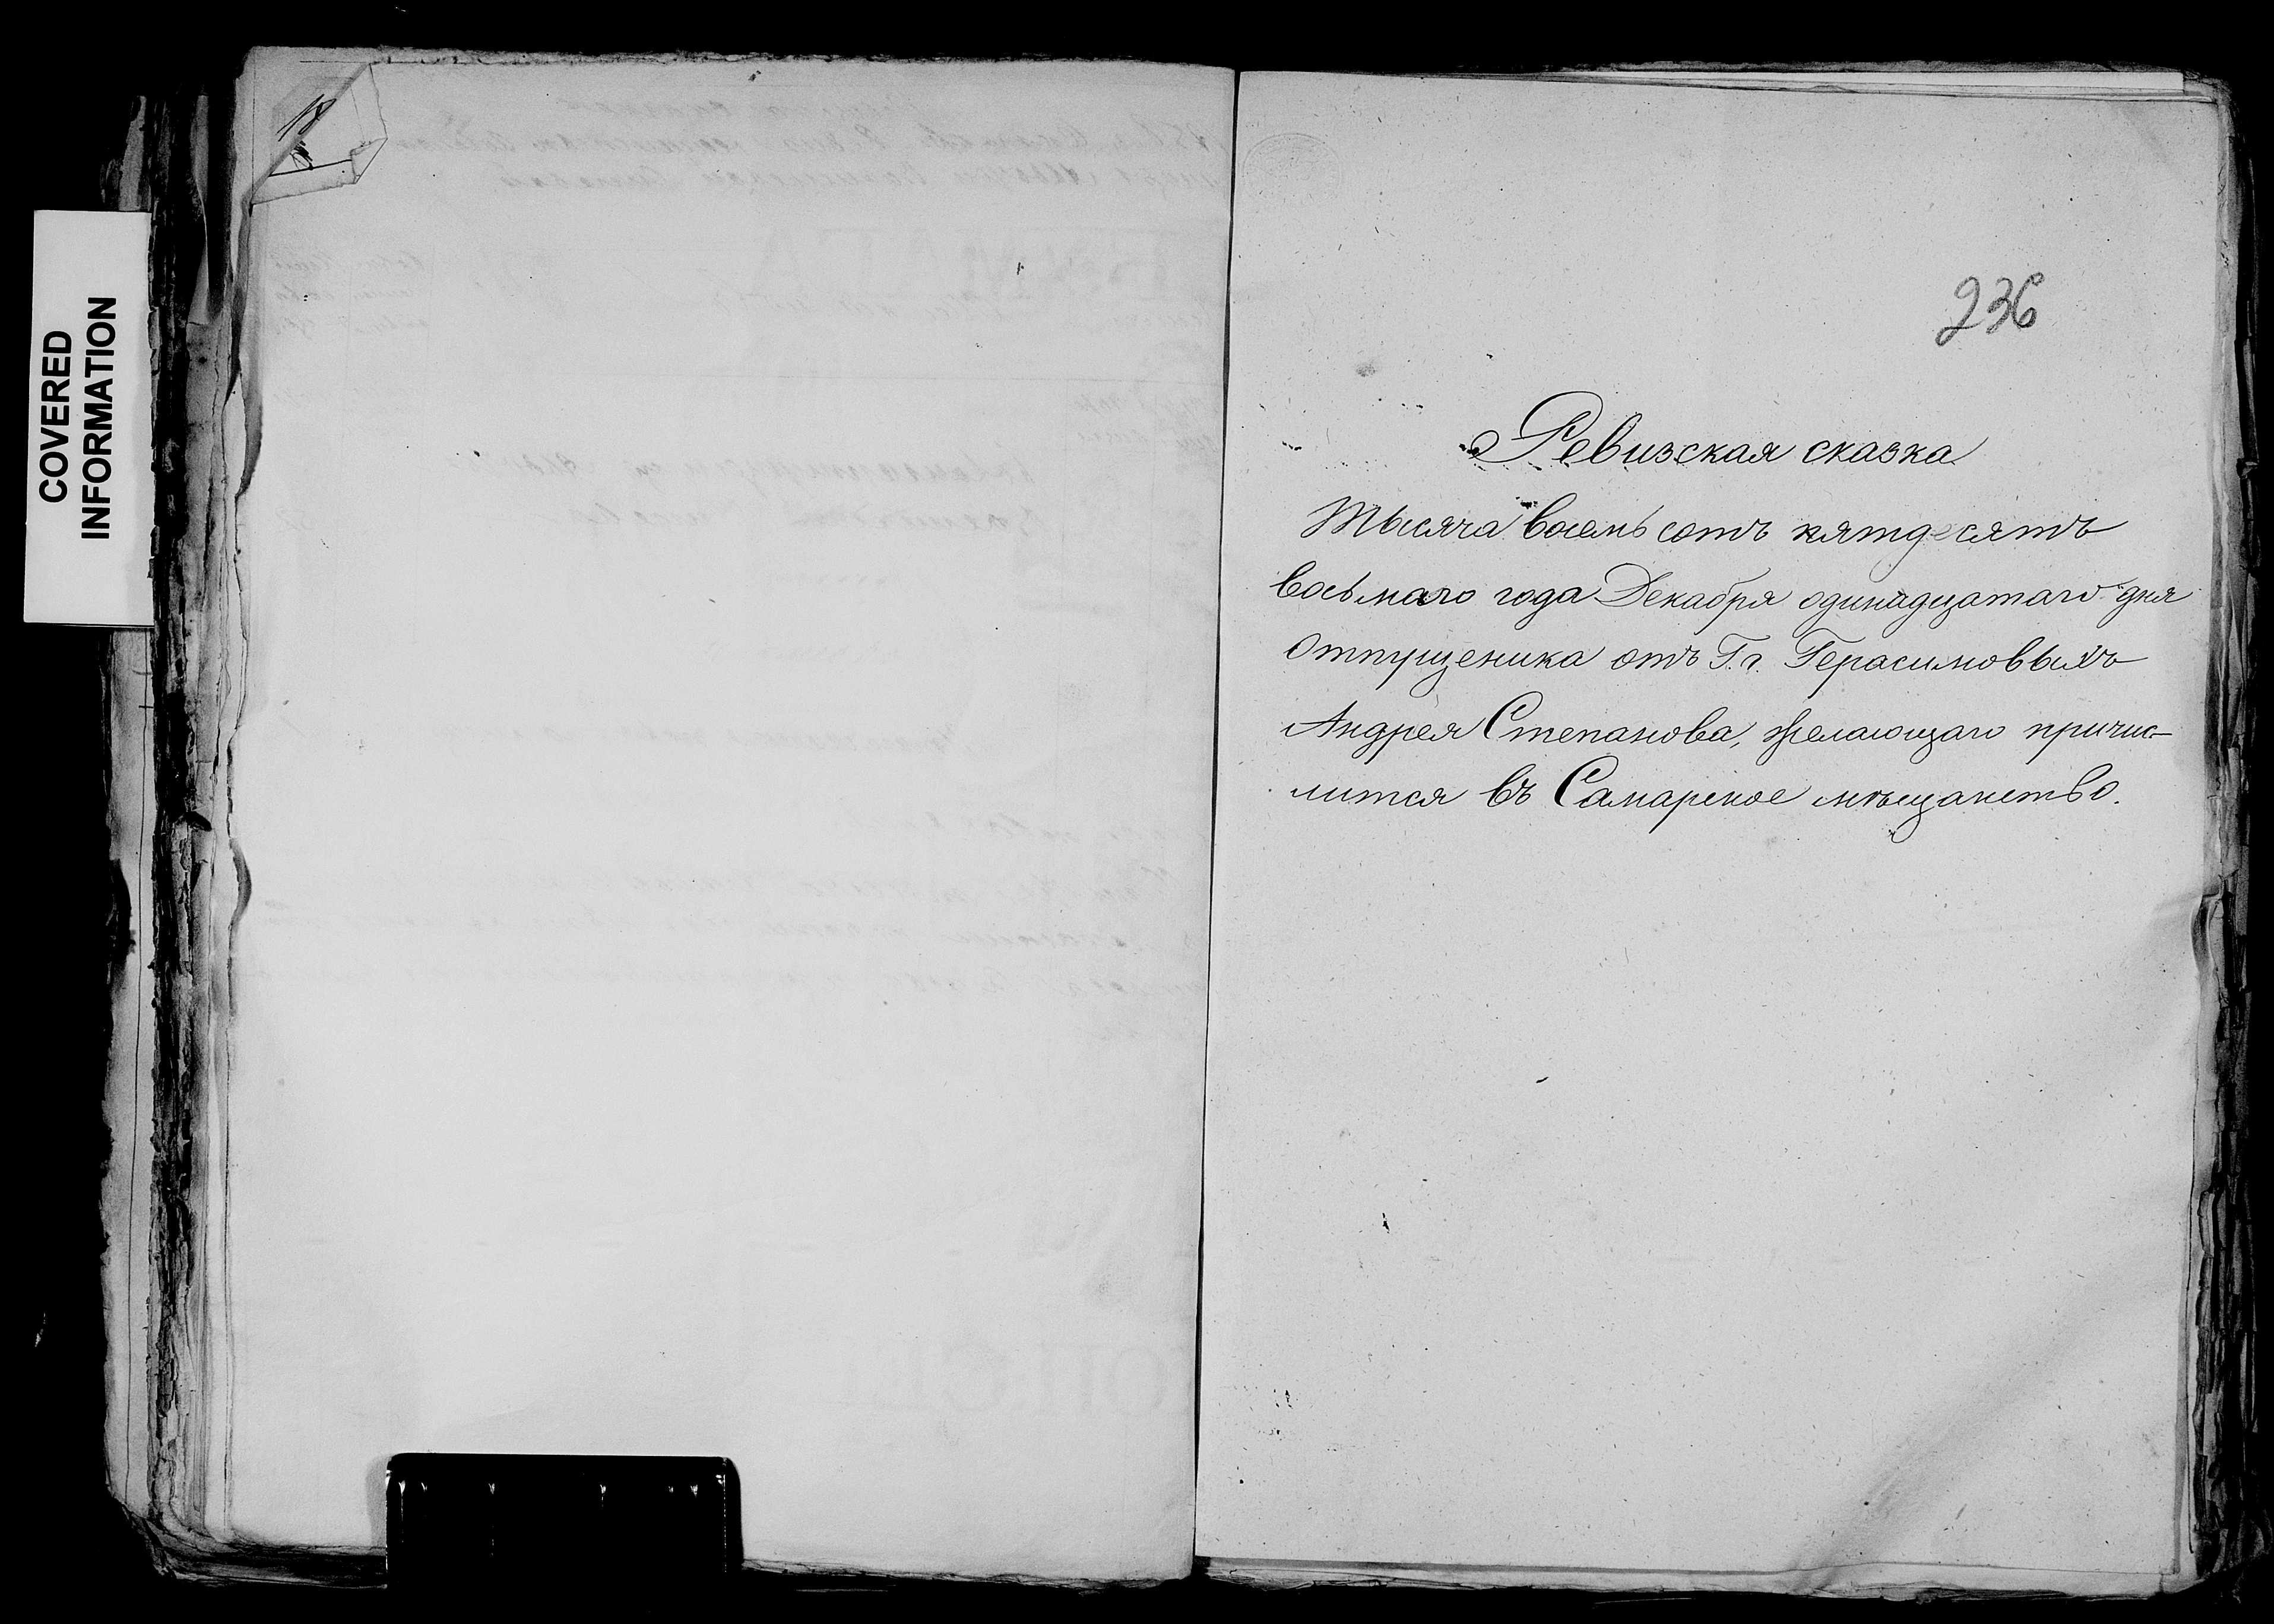 COVERED
INFORMATION
18
236
Ревизская сказка
Тысяча восемь сотъ пятдесятъ
восьмаго года Декабря одинадцатаго дня
Отпущеника отъ Г.г. Герасимовыхъ
Андрея Степанова, желающаго причис-
лится въ Самарское мѣщанство.